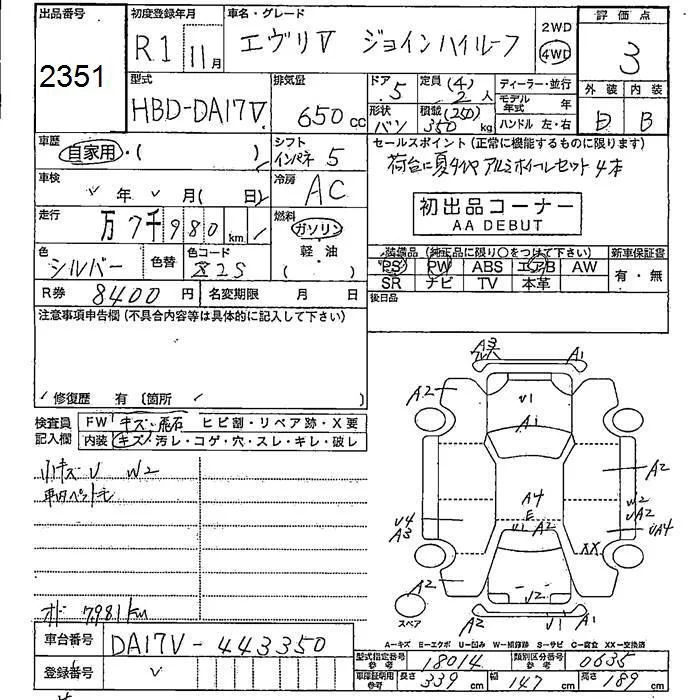 出品番号
2351
初度登録年月
R1 11月
車名・グレード
エヴリV ジョインハイルーフ
2WD
4WD
評価点
3
型式
HBD-DA17V
排気量
650 cc
ドア 5
定員 (4) 2 人
ディーラー・並行
モデル年式 年
形状 バン
積載 (250) 350 kg
ハンドル 左・右
外装 内装
D B
車歴
自家用・( )
シフト
インパネ 5
セールスポイント (正常に機能するものに限ります)
荷台に夏タイヤアルミホイールセット4本
車検
年 月( 日)
冷房
AC
初出品コーナー
AA DEBUT
走行
万7千980 km
燃料
ガソリン
軽・油
( )
色
シルバー
色替
色コード
Z2S
装備品 (純正品に限り○をつけて下さい)
新車保証書
PS PW ABS エアB AW
SR ナビ TV 本革
有・無
R券 8400円
名変期限 月 日
後日品
注意事項申告欄 (不具合内容等は具体的に記入して下さい)
修復歴 有 (箇所 )
検査員記入欄
FW キズ・飛石 ヒビ割・リペア跡・X要
内装 キズ・汚レ・コゲ・穴・スレ・キレ・破レ
小キズU W2
オド 7,981km
A3
A1
A2
U1
A1
A2
A4
E
U4
A3
W2
UA2
UA4
U1 A2
XX
A2
U2
A2
U1 A1
スペア
A-キズ E-エクボ U-凹み W-補修跡 S-サビ C-腐食 XX-交換済
車台番号 DA17V-443350
登録番号
型式指定番号 参考 18014
類別区分番号 参考 0635
車庫証明用 参考 長さ 339 cm 幅 147 cm 高さ 189 cm